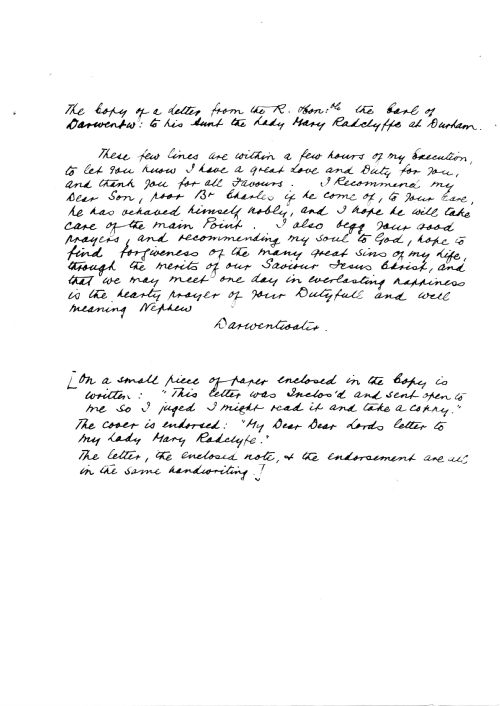 The Copy of a Letter from the R. Hon:ble the Earl of
Darwentw: to his Aunt the Lady Mary Radclyffe at Durham.
These few lines are within a few hours of my Execution,
to let you know I have a great Love and Duty for You,
and thank You for all Favours. I Recommend my
Dear Son, poor Br Charles if he come of, to Your Care,
he has behaved himself nobly, and I hope he will take
care of the main Point. I also begg Your good
prayers, and recommending my soul to God, hope to
find forgiveness of the many great sins of my life,
through the merits of our Saviour Jesus Christ, and
that we may meet one day in everlasting happiness
is the hearty prayer of Your Dutyfull and well
meaning Nephew
Darwentwater.
[On a small piece of paper enclosed in the Copy is
written: "This letter was Inclos'd and sent open to
me so I juged I might read it and take a coppy."
The cover is endorsed: "My Dear Dear Lords letter to
my Lady Mary Radclyfe."
The letter, the enclosed note, & the endorsement are all
in the same handwriting.]